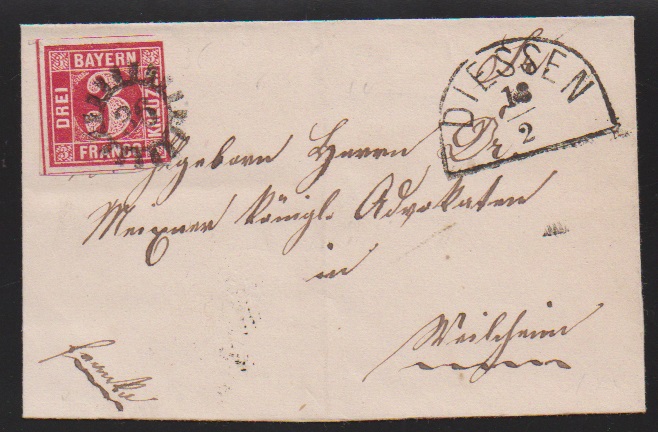 BAYERN
DREI
KREUZER
FRANCO
DIESSEN
18
2
Herrn Dr.
Meixner königl. Advokaten
in
Weilheim